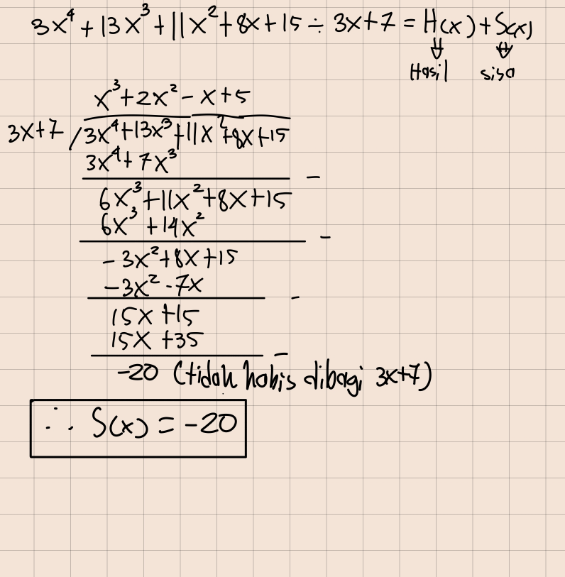 3x⁴ + 13x³ + 11x² + 8x + 15 ÷ 3x + 7 = H(x) + S(x)
⇓ ⇓
Hasil sisa
x³ + 2x² - x + 5
3x+7 / 3x⁴+13x³+11x²+8x+15
3x⁴+7x³
-
6x³+11x²+8x+15
6x³ +14x²
-
-3x²+8x+15
-3x² -7x
-
15x +15
15x +35
-
-20 (tidak habis dibagi 3x+7)
∴ S(x) = -20